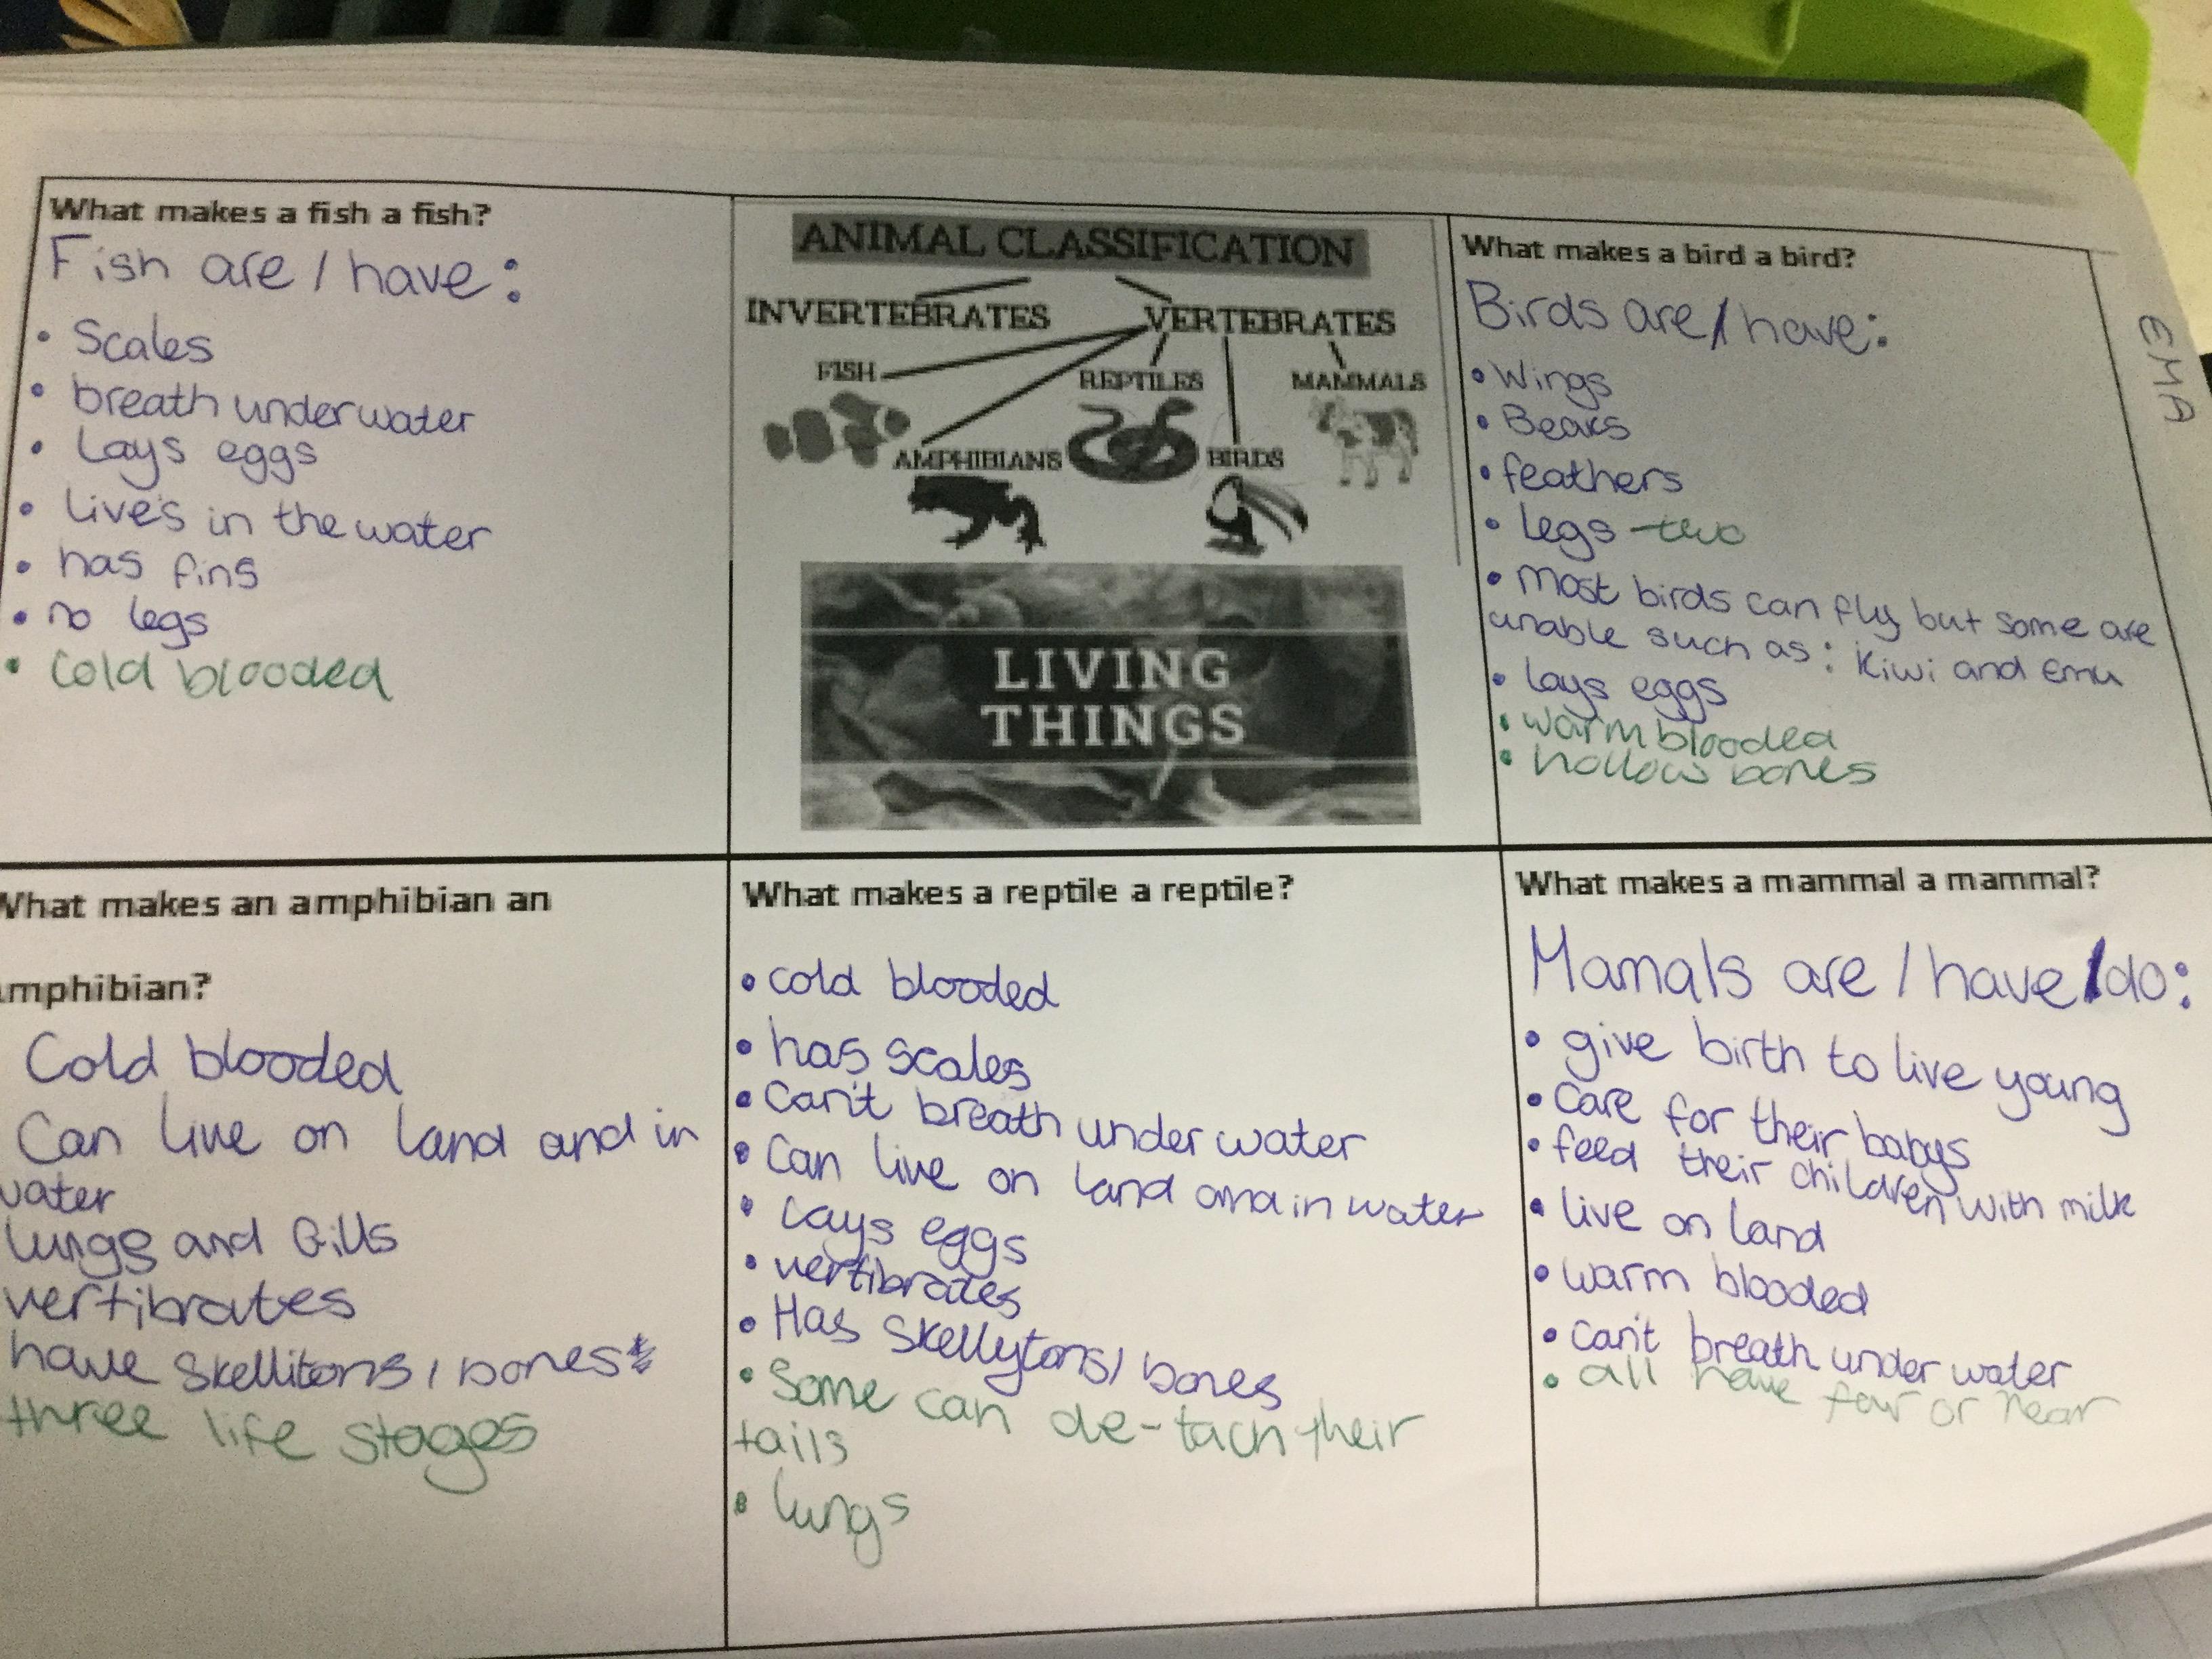 What makes a fish a fish?
Fish are / have :
• Scales
• breath under water
• Lays eggs
• live's in the water
• has fins
• no legs
• Cold blooded
ANIMAL CLASSIFICATION
INVERTEBRATES VERTEBRATES
FISH REPTILES MAMMALS
AMPHIBIANS BIRDS
LIVING
THINGS
What makes a bird a bird?
Birds are / have:
• Wings
• Beaks
• feathers
• Legs - two
• Most birds can fly but some are
unable such as: Kiwi and Emu
• Lays eggs
• warm blooded
• hollow bones
EMA
What makes an amphibian an
mphibian?
Cold blooded
Can live on land and in
water
Lungs and Gills
vertibrates
have Skellitons / bones
three life stages
What makes a reptile a reptile?
• cold blooded
• has scales
• Can't breath under water
• Can live on land and in water
• Lays eggs
• vertibrates
• Has Skellytons / bones
• Some can de-tach their
tails
• Lungs
What makes a mammal a mammal?
Mamals are / have / do:
• give birth to live young
• Care for their babys
• feed their children with milk
• live on land
• warm blooded
• can't breath under water
• all have